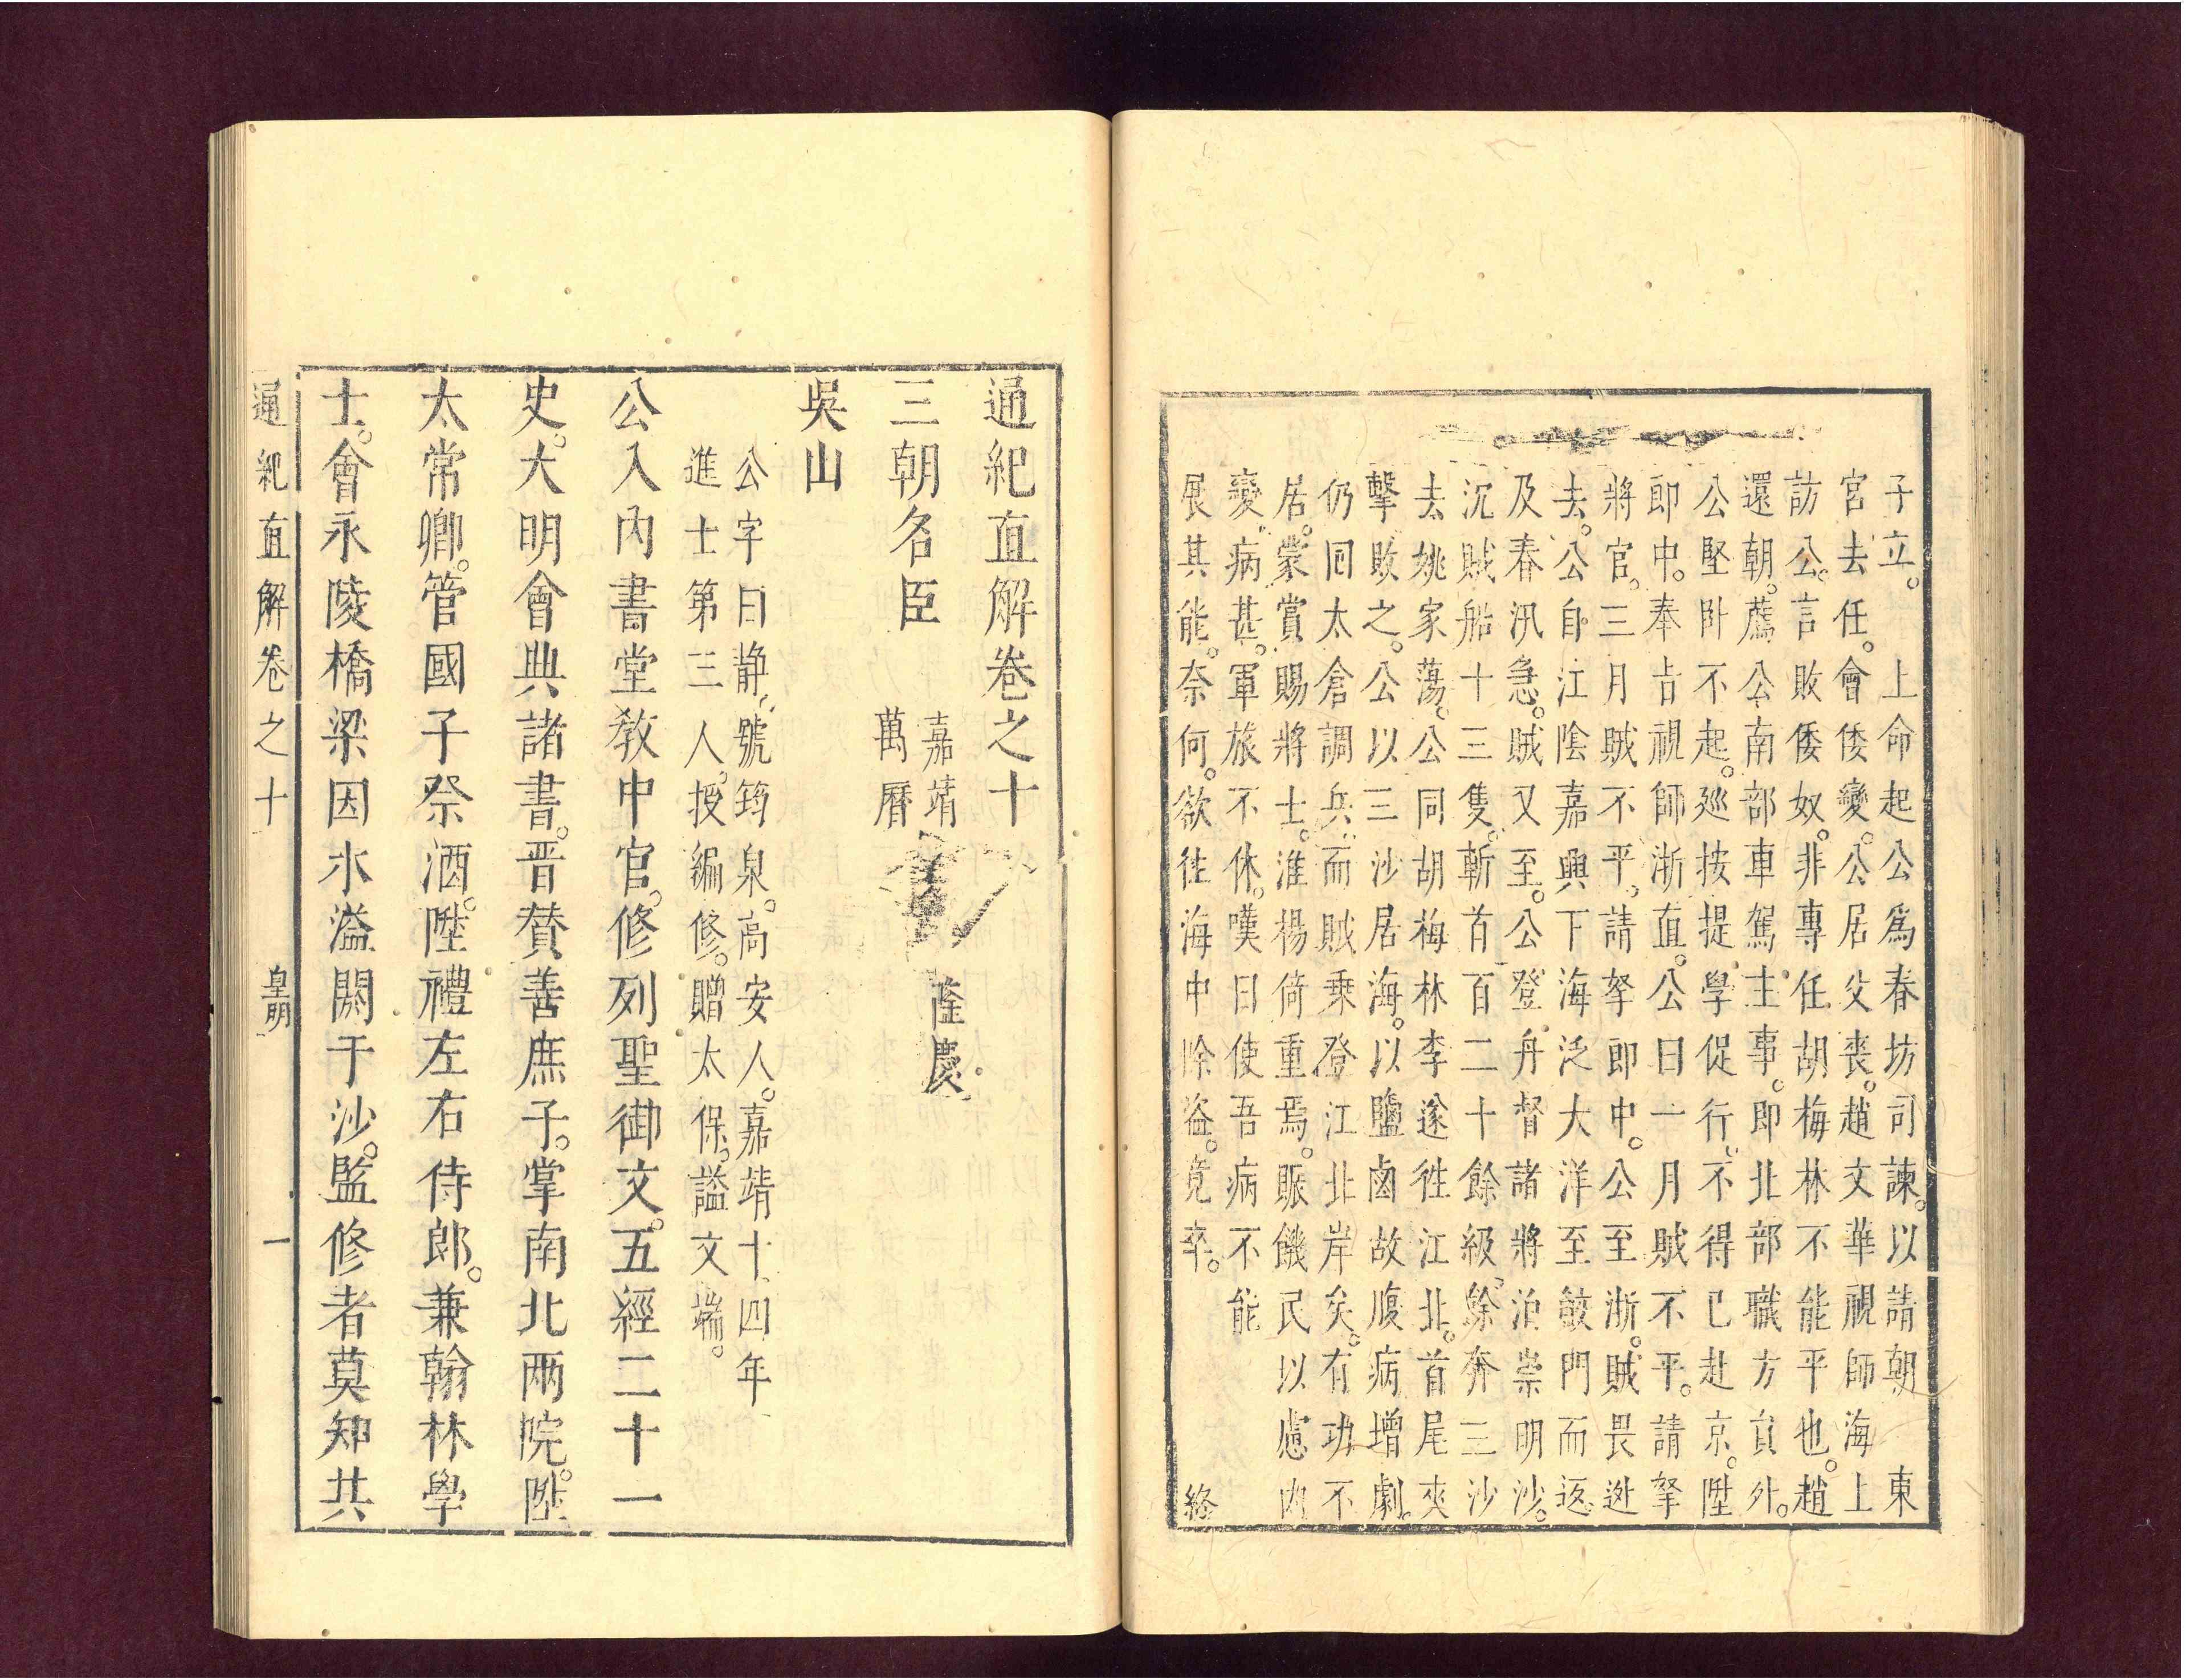 子立。　上命起公爲春坊司諫。以請朝　東
宮去任。會倭變。公居父喪。趙文華視師海上
訪公。言敗倭奴。非專任胡梅林不能平也。趙
還朝。薦公南部車駕主事。即北部職方員外。
公堅卧不起。廵按提學促行。不得已赴京。陞
郎中。奉旨視師浙直。公曰一月賊不平。請拏
將官。三月賊不平。請拏郎中。公至浙。賊畏迯
去。公自江陰嘉興下海泛大洋至鼓門而返。
及春汛急。賊又至。公登舟督諸將泊崇明沙。
沉賊船十三隻。斬首百二十餘級。餘奔三沙
去姚家蕩。公同胡梅林李遂徃江北。首尾夾
擊敗之。公以三沙居海。以鹽鹵故腹病增劇。
仍囘太倉調兵。而賊乗登江北岸矣。有功不
居。蒙賞賜將士。淮揚倚重焉。賑饑民以慮内
變。病甚。軍旅不休。嘆曰使吾病不能
展其能。奈何。欲徃海中除盗。竟卒。　終
通紀直解卷之十
三朝名臣　嘉靖　隆慶
萬曆
吳山
公字曰静、號筠泉。高安人。嘉靖十四年
進士第三人。授編修。贈太保。謚文端。
公入内書堂教中官。修列聖御文。五經二十一
史。大明會典諸書。晋賛善庶子。掌南北兩院。陞
太常卿。管國子祭酒。陞禮左右侍郎。兼翰林學
士。會永陵橋梁因水溢閼于沙。監修者莫知共
通紀直解卷之十　皇明　一